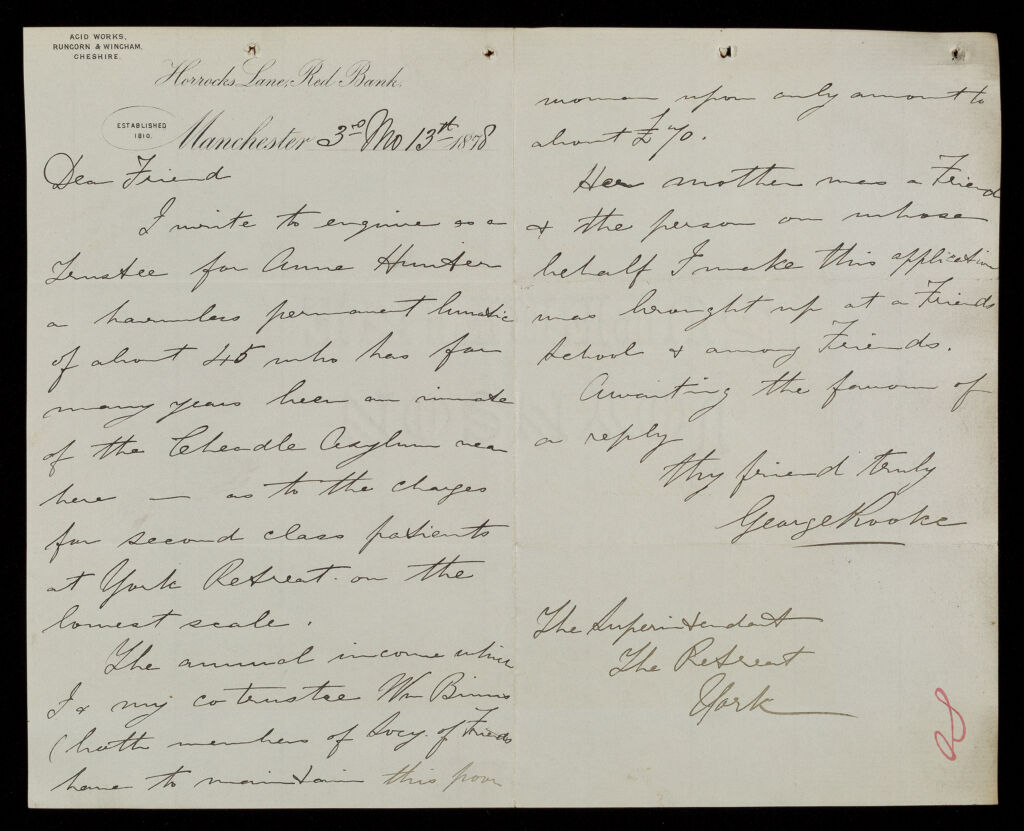 ACID WORKS,
RUNCORN & WINCHAM,
CHESHIRE.
Horrocks Lane, Red Bank,
ESTABLISHED
1810.
Manchester 3rd Mo 13th 1878
Dear Friend
I write to enquire as a
Trustee for Anne Hunter
a harmless permanent lunatic
of about 45 who has for
many years been an inmate
of the Cheadle Asylum near
here — as to the charges
for second class patients
at York Retreat on the
lowest scale.
The annual income which
I & my cotrustee Wm Binns
(both members of Socy. of Friends
have to maintain this poor
woman upon only amount to
about £70.
Her mother was a Friend
& the person on whose
behalf I make this application
was brought up at a Friends
School & among Friends.
Awaiting the favour of
a reply
thy friend truly
George Rooke
The Superintendant
The Retreat
York